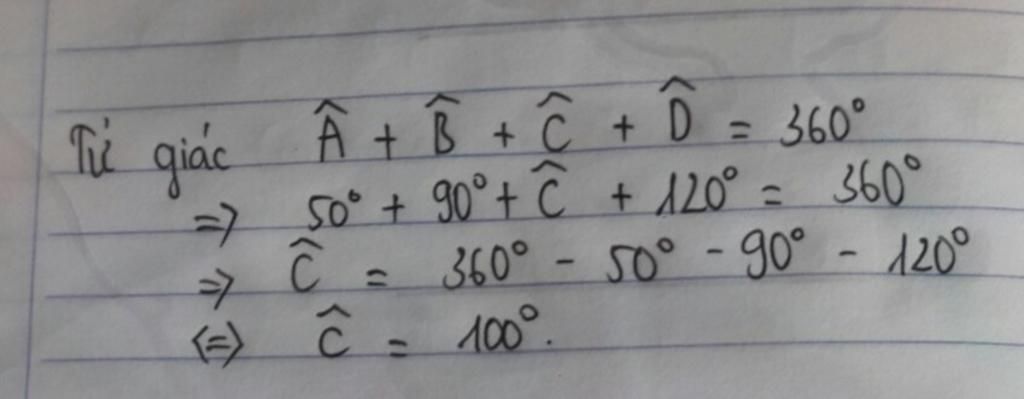 Tứ giác Â + B̂ + Ĉ + D̂ = 360°
=> 50° + 90° + Ĉ + 120° = 360°
=> Ĉ = 360° - 50° - 90° - 120°
<=> Ĉ = 100°.